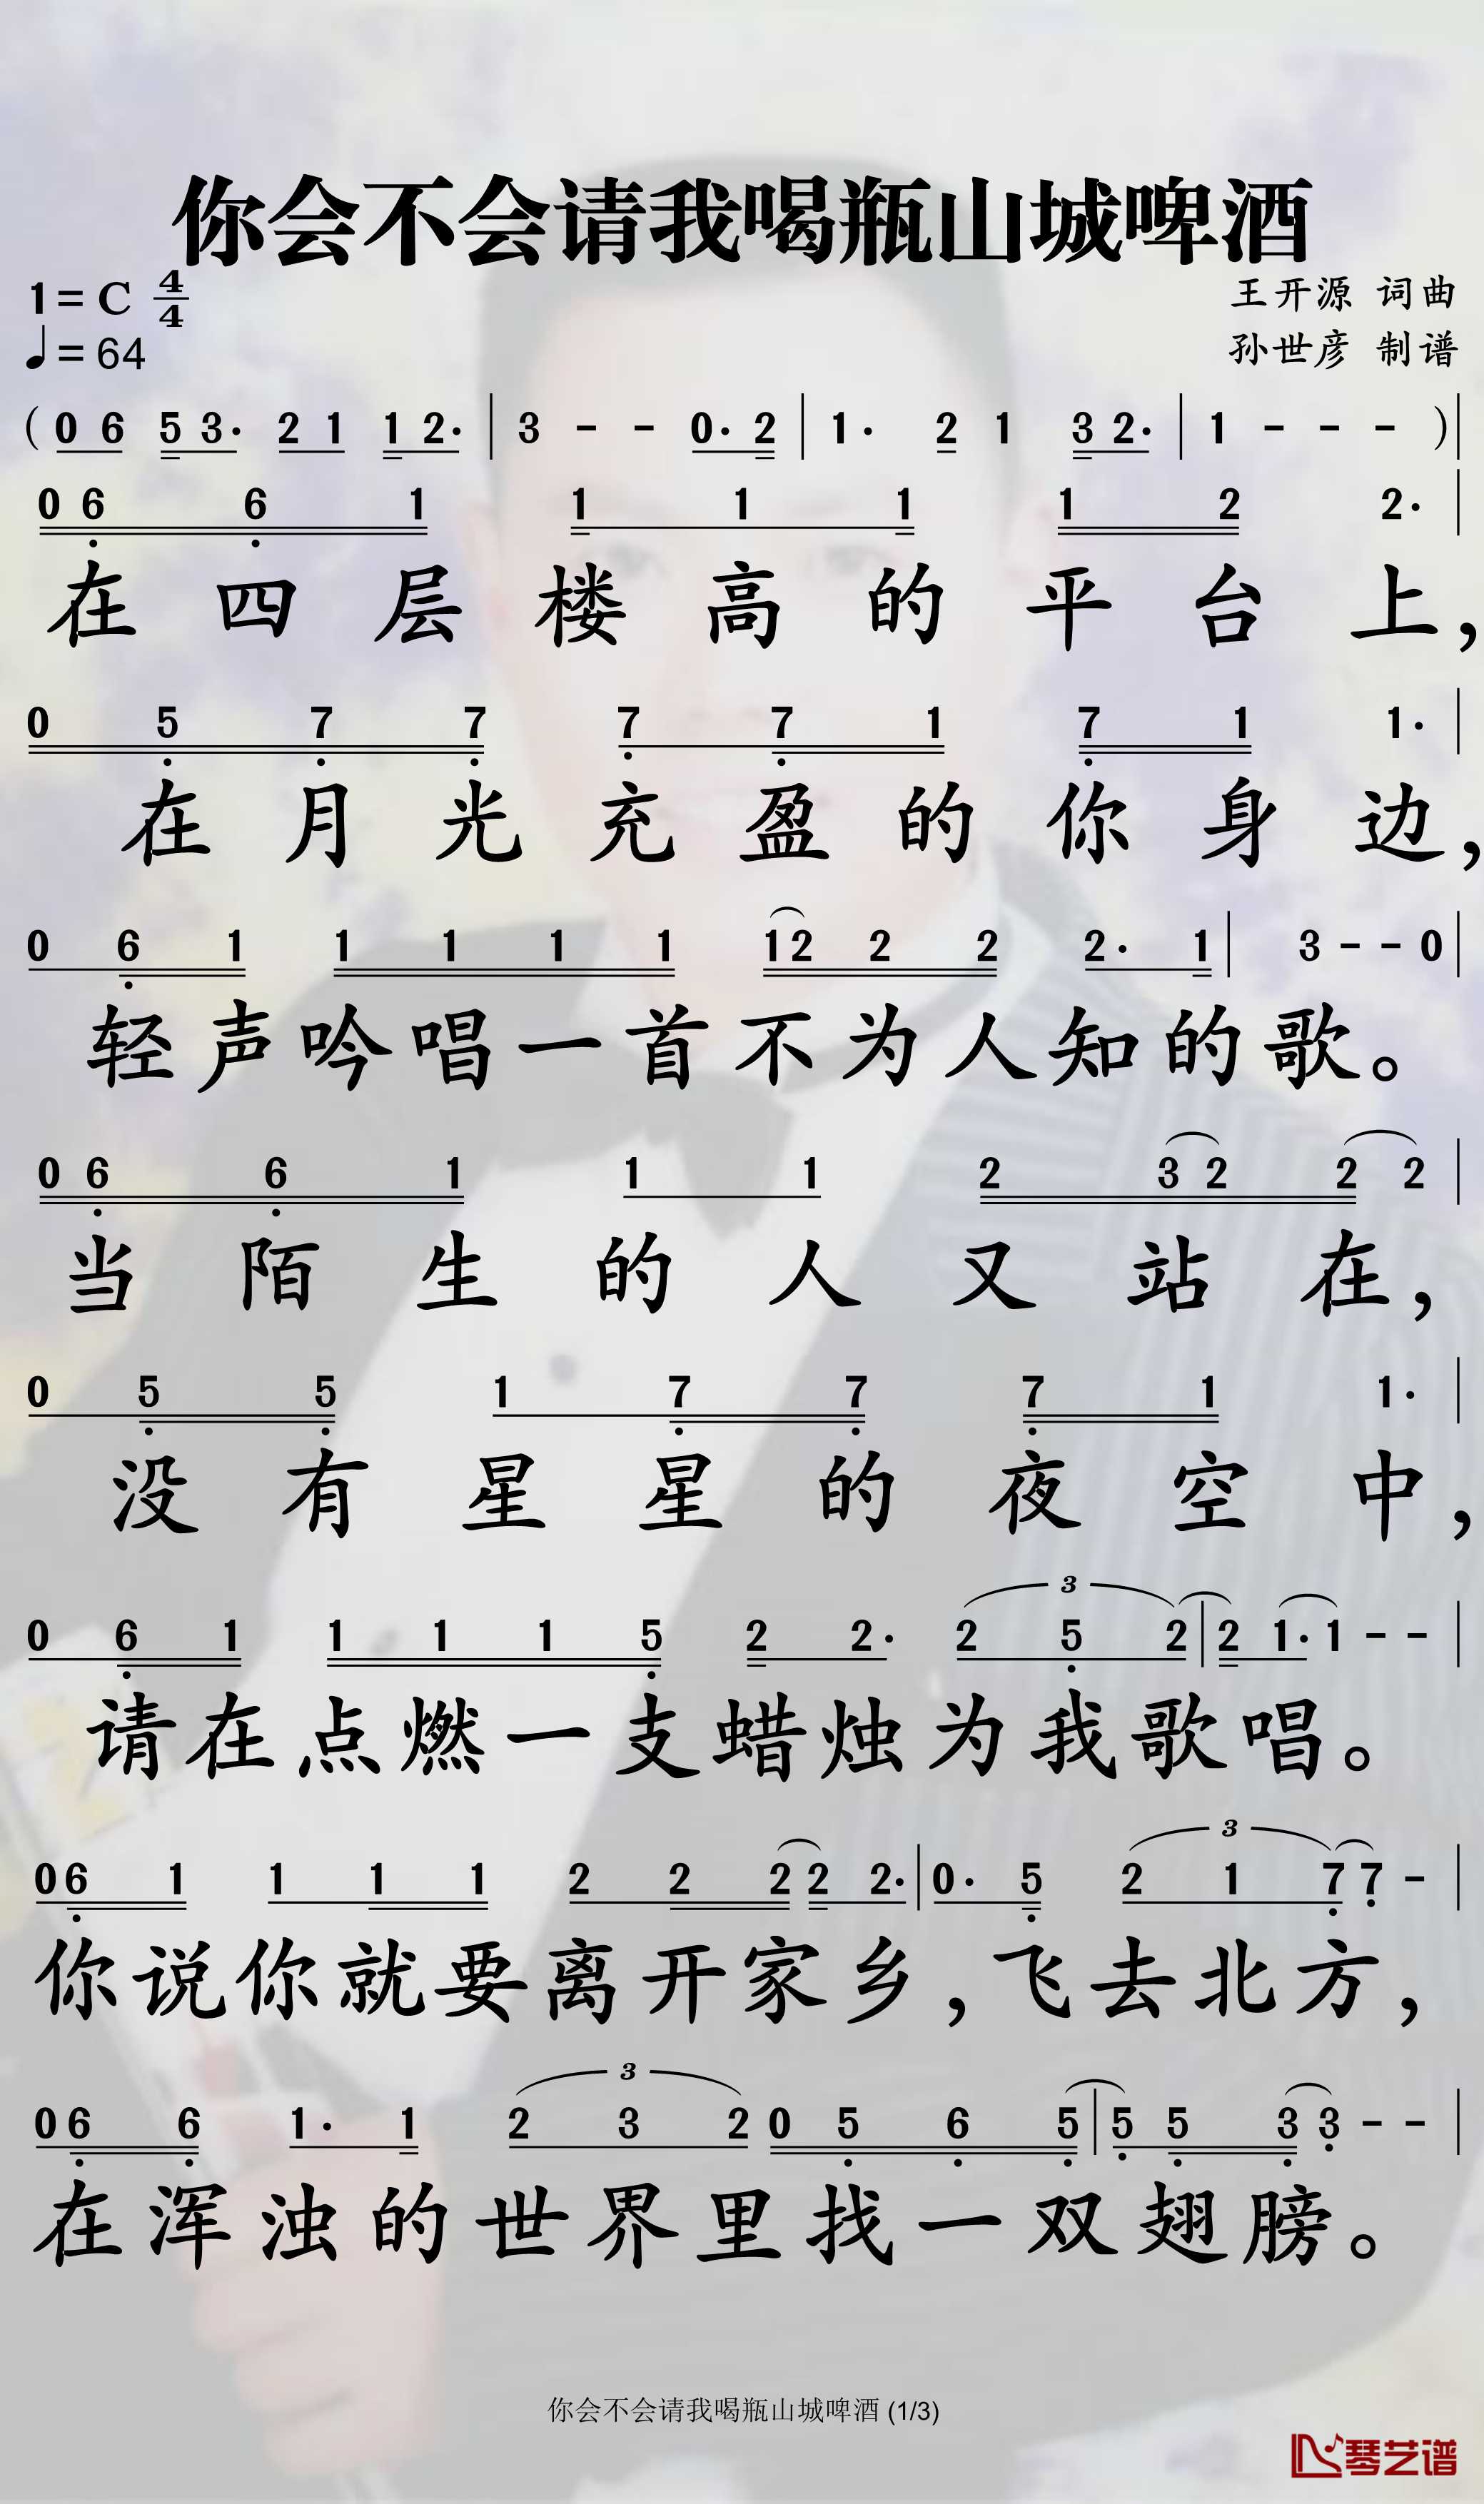 你会不会请我喝瓶山城啤酒
1=C 4/4
王开源 词曲
♩=64
孙世彦 制谱
( 0 6 5 3. 2 1 1 2. | 3 - - 0. 2 | 1. 2 1 3 2. | 1 - - - ) |
0 6 6 1 1 1 1 1 2 2. |
在四层楼高的平台上，
0 5 7 7 7 7 1 7 1 1. |
在月光充盈的你身边，
0 6 1 1 1 1 1 1 2 2 2 2. 1 | 3 - - 0 |
轻声吟唱一首不为人知的歌。
0 6 6 1 1 1 2 3 2 2 2 |
当陌生的人又站在，
0 5 5 1 7 7 7 1 1. |
没有星星的夜空中，
3
0 6 1 1 1 1 5 2 2. 2 5 2 | 2 1. 1 - - |
请在点燃一支蜡烛为我歌唱。
3
0 6 1 1 1 1 2 2 2 2 2. | 0. 5 2 1 7 7 - |
你说你就要离开家乡，飞去北方，
3
0 6 6 1. 1 2 3 2 0 5 6 5 | 5 5 3 3 - - |
在浑浊的世界里找一双翅膀。
你会不会请我喝瓶山城啤酒 (1/3)
琴艺谱